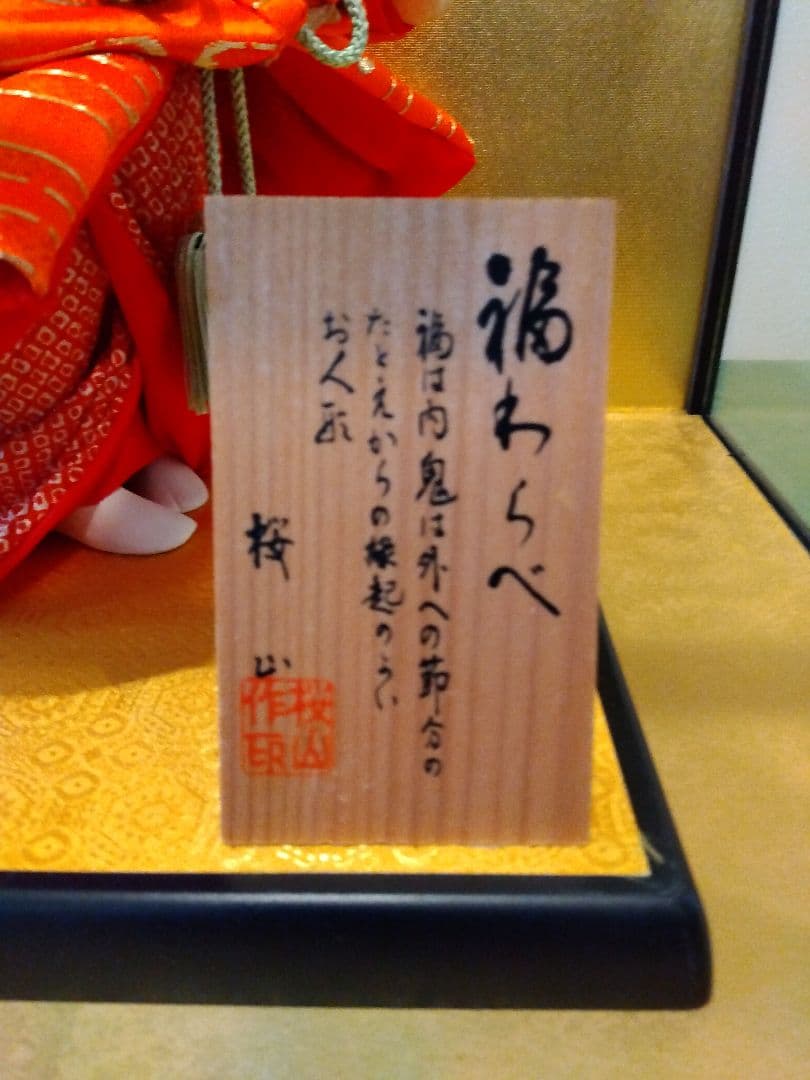 福わらべ
福は内鬼は外への節分の
たとえからの縁起のよい
お人形
桜山
桜山
作印